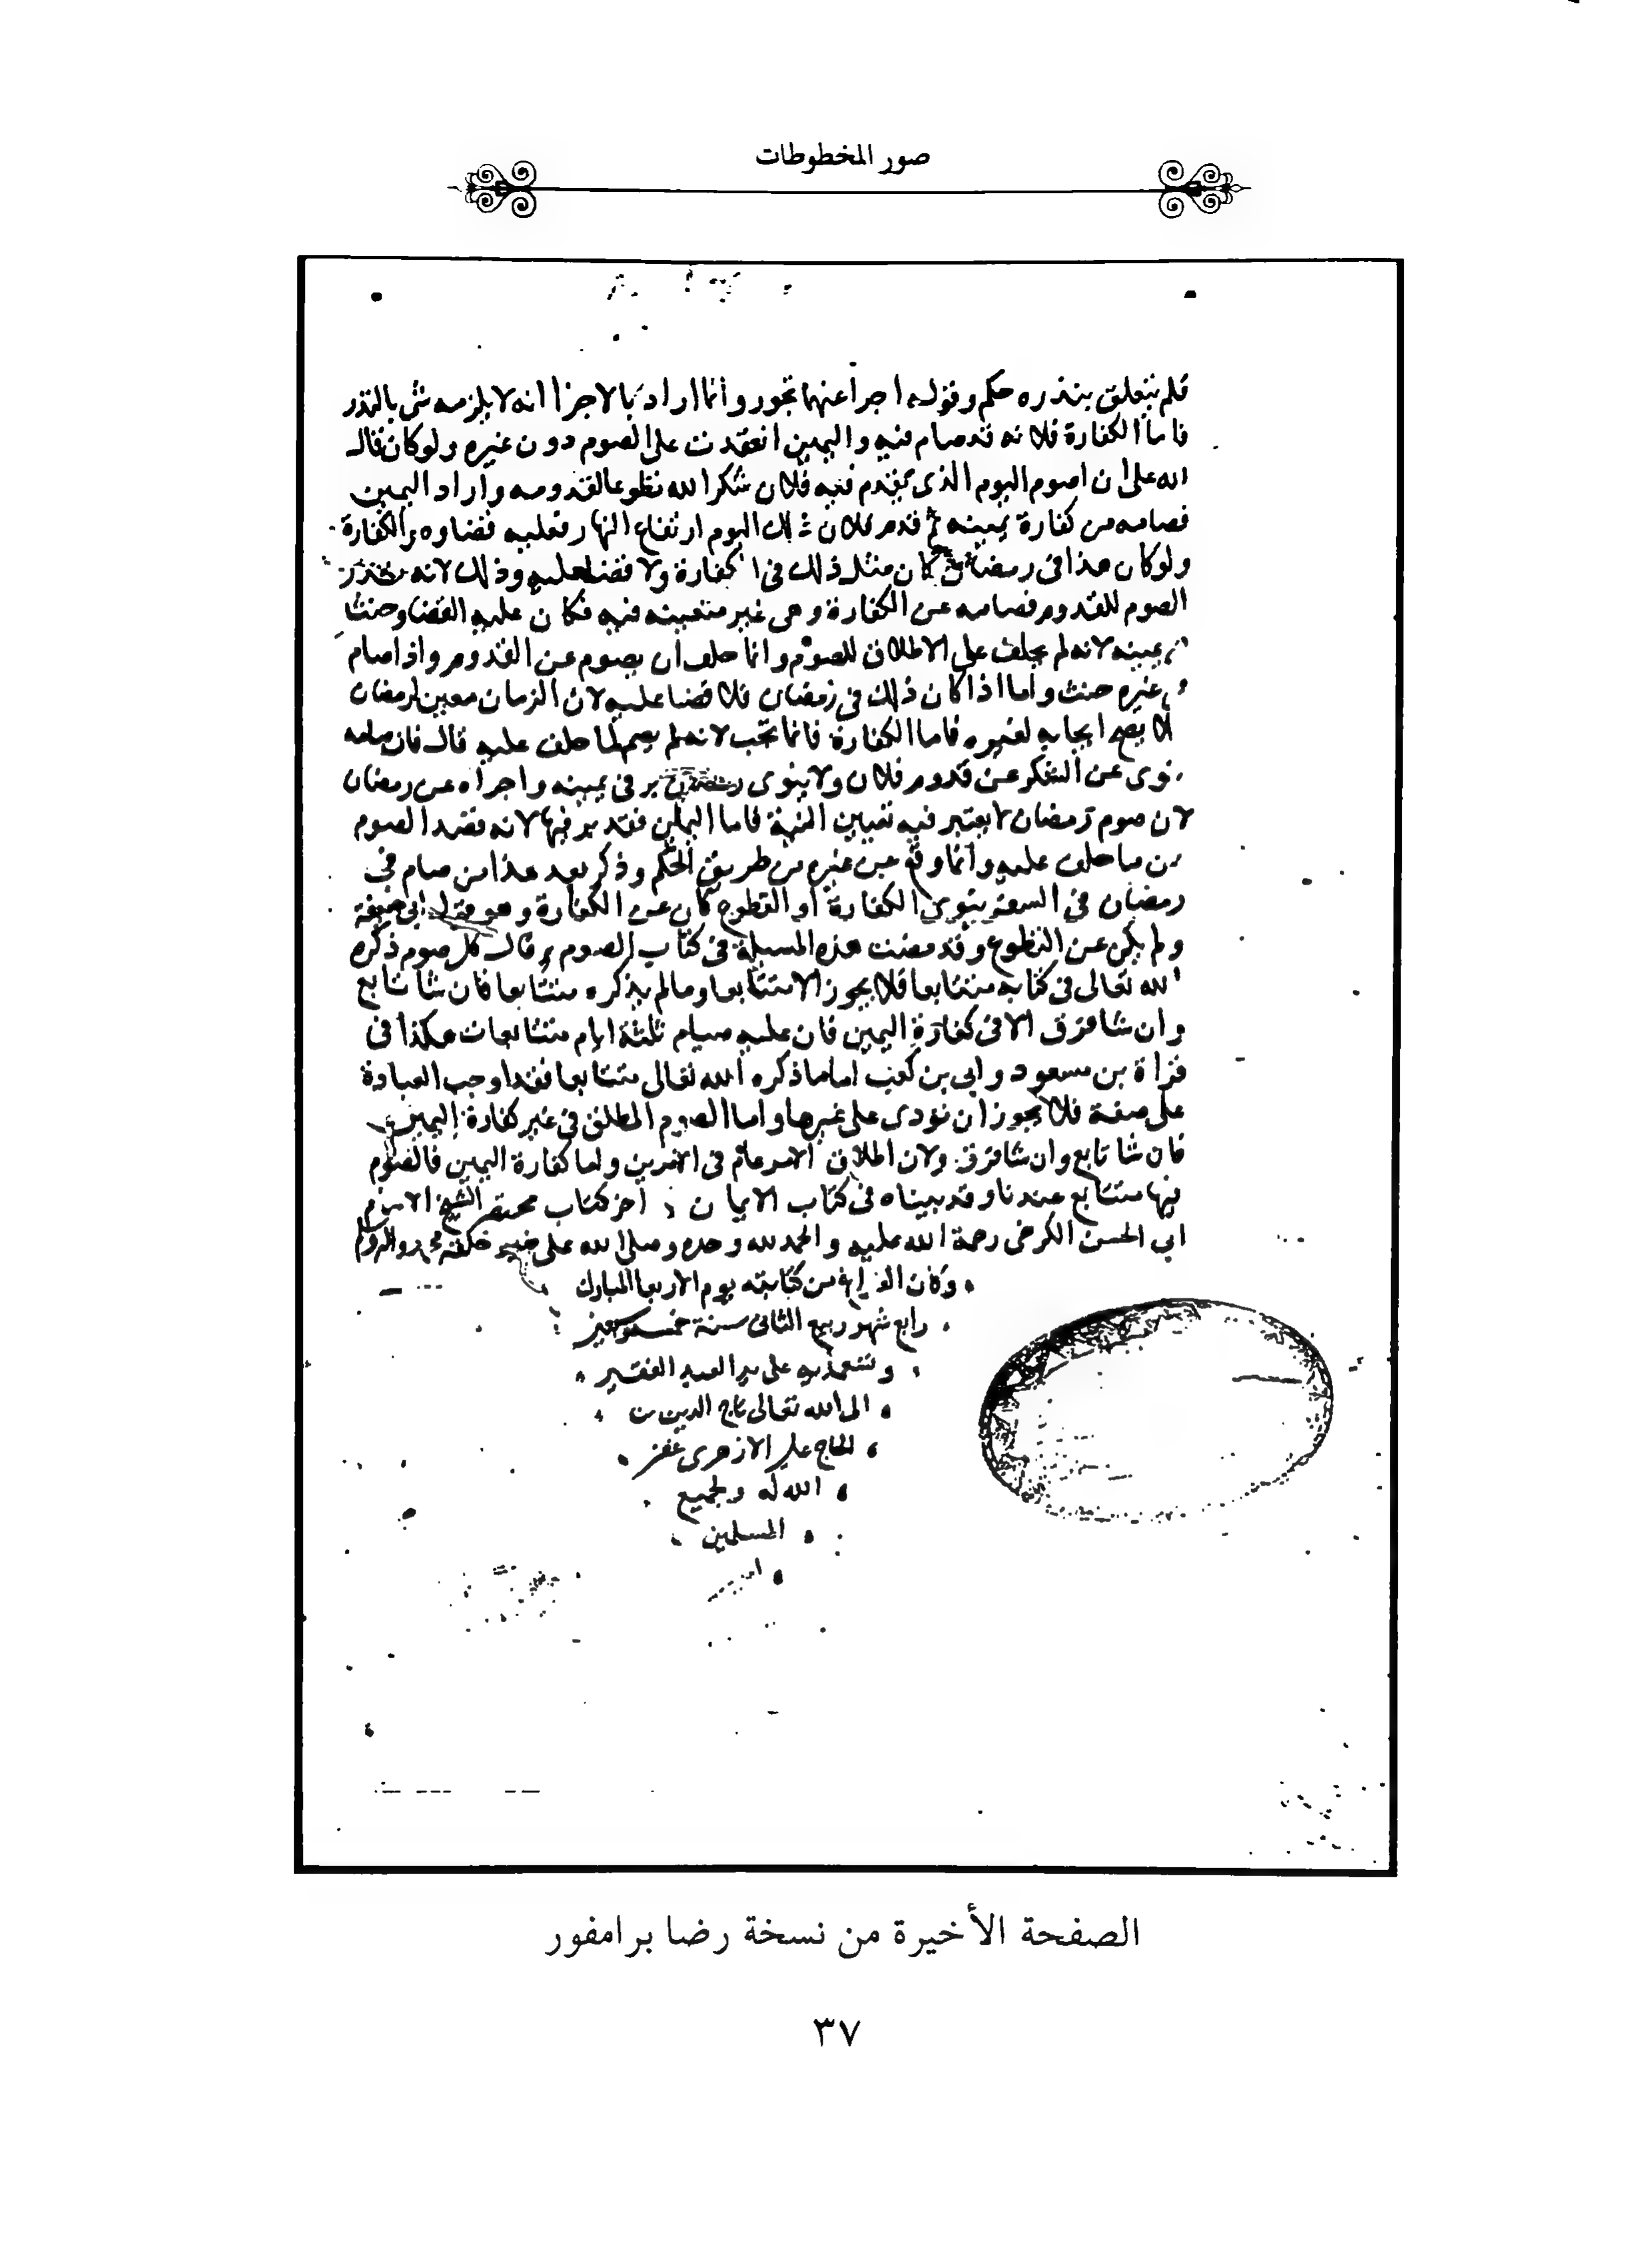 صور المخطوطات
فلم يتعلق بنذره حكم وقوله اجزا عنهما تجوز وانما اراد بالاجزا انه لا يلزمه شى بالنذر
فاما الكفارة فلانه قد صام فيه واليمين انعقدت على الصوم دون غيره ولو كان قال
لله على ان اصوم اليوم الذى يقدم فيه فلان شكرا لله تطوعا لقدومه واراد اليمين
فصامه من كفارة يمينه ثم قدم فلان ذلك اليوم ارتفاع النهار فعليه قضاوه والكفارة
ولو كان هذا فى رمضان كان مثل ذلك فى الكفارة ولا قضا عليه وذلك لانه
الصوم للقدوم فصامه عن الكفارة وهى غير متعينه فيه فكان عليه القضا وحنث
يمينه لانه لم يحلف على الاطلاق للصوم وانما حلف ان يصوم عن القدوم واذا صام
عن غيره حنث واما اذا كان ذلك فى رمضان فلا قضا عليه لان الزمان معين لرمضان
فلا يصح ايجابه لغيره فاما الكفارة فانما تجب لانه لم يصم لما حلف عليه قال فان صامه
نوى عن الشكر عن قدوم فلان ولا ينوى رمضان بر فى يمينه واجزاه عن رمضان
لان صوم رمضان لا يعتبر فيه تعيين النية فاما اليمين فقد بر فيها لانه قصد الصوم
عن ما حلف عليه وانما وقع عن غيره من طريق الحكم وذكر بعد هذا من صام فى
رمضان فى السفر ينوى الكفارة او التطوع كان عن الكفارة وهو قول ابى حنيفة
ولم يكن عن التطوع وقد مضت هذه المسيلة فى كتاب الصوم وقال كل صوم ذكره
الله تعالى فى كتابه متتابعا فلا يجوز الا متتابعا وما لم يذكره متتابعا فان شا تابع
وان شا فرق الا فى كفارة اليمين فان عليه صيام ثلثة ايام متتابعات هكذا فى
قراة بن مسعود وابى بن كعب اما ما ذكره الله تعالى متتابعا فقد اوجب العبادة
على صفة فلا يجوز ان تودى على غيرها واما الصوم المطلق فى غير كفارة اليمين
فان شا تابع وان شا فرق ولان اطلاق الامر عام فى الامرين واما كفارة اليمين فالصوم
فيها متتابع عندنا وقد بيناه فى كتاب الايمان اخر كتاب مختصر الشيخ الامام
ابى الحسن الكرخى رحمة الله عليه والحمد لله وحده وصلى الله على خير خلقه محمد واله وسلم
وكان الفراغ من كتابته يوم الاربعا المبارك
رابع شهر ربيع الثانى سنة خمس
وتسعمايه على يد العبد الفقير
الى الله تعالى تاج الدين بن
الحاج على الازهرى غفر
الله له ولجميع
المسلمين
امين
الصفحة الأخيرة من نسخة رضا برامفور
٣٧